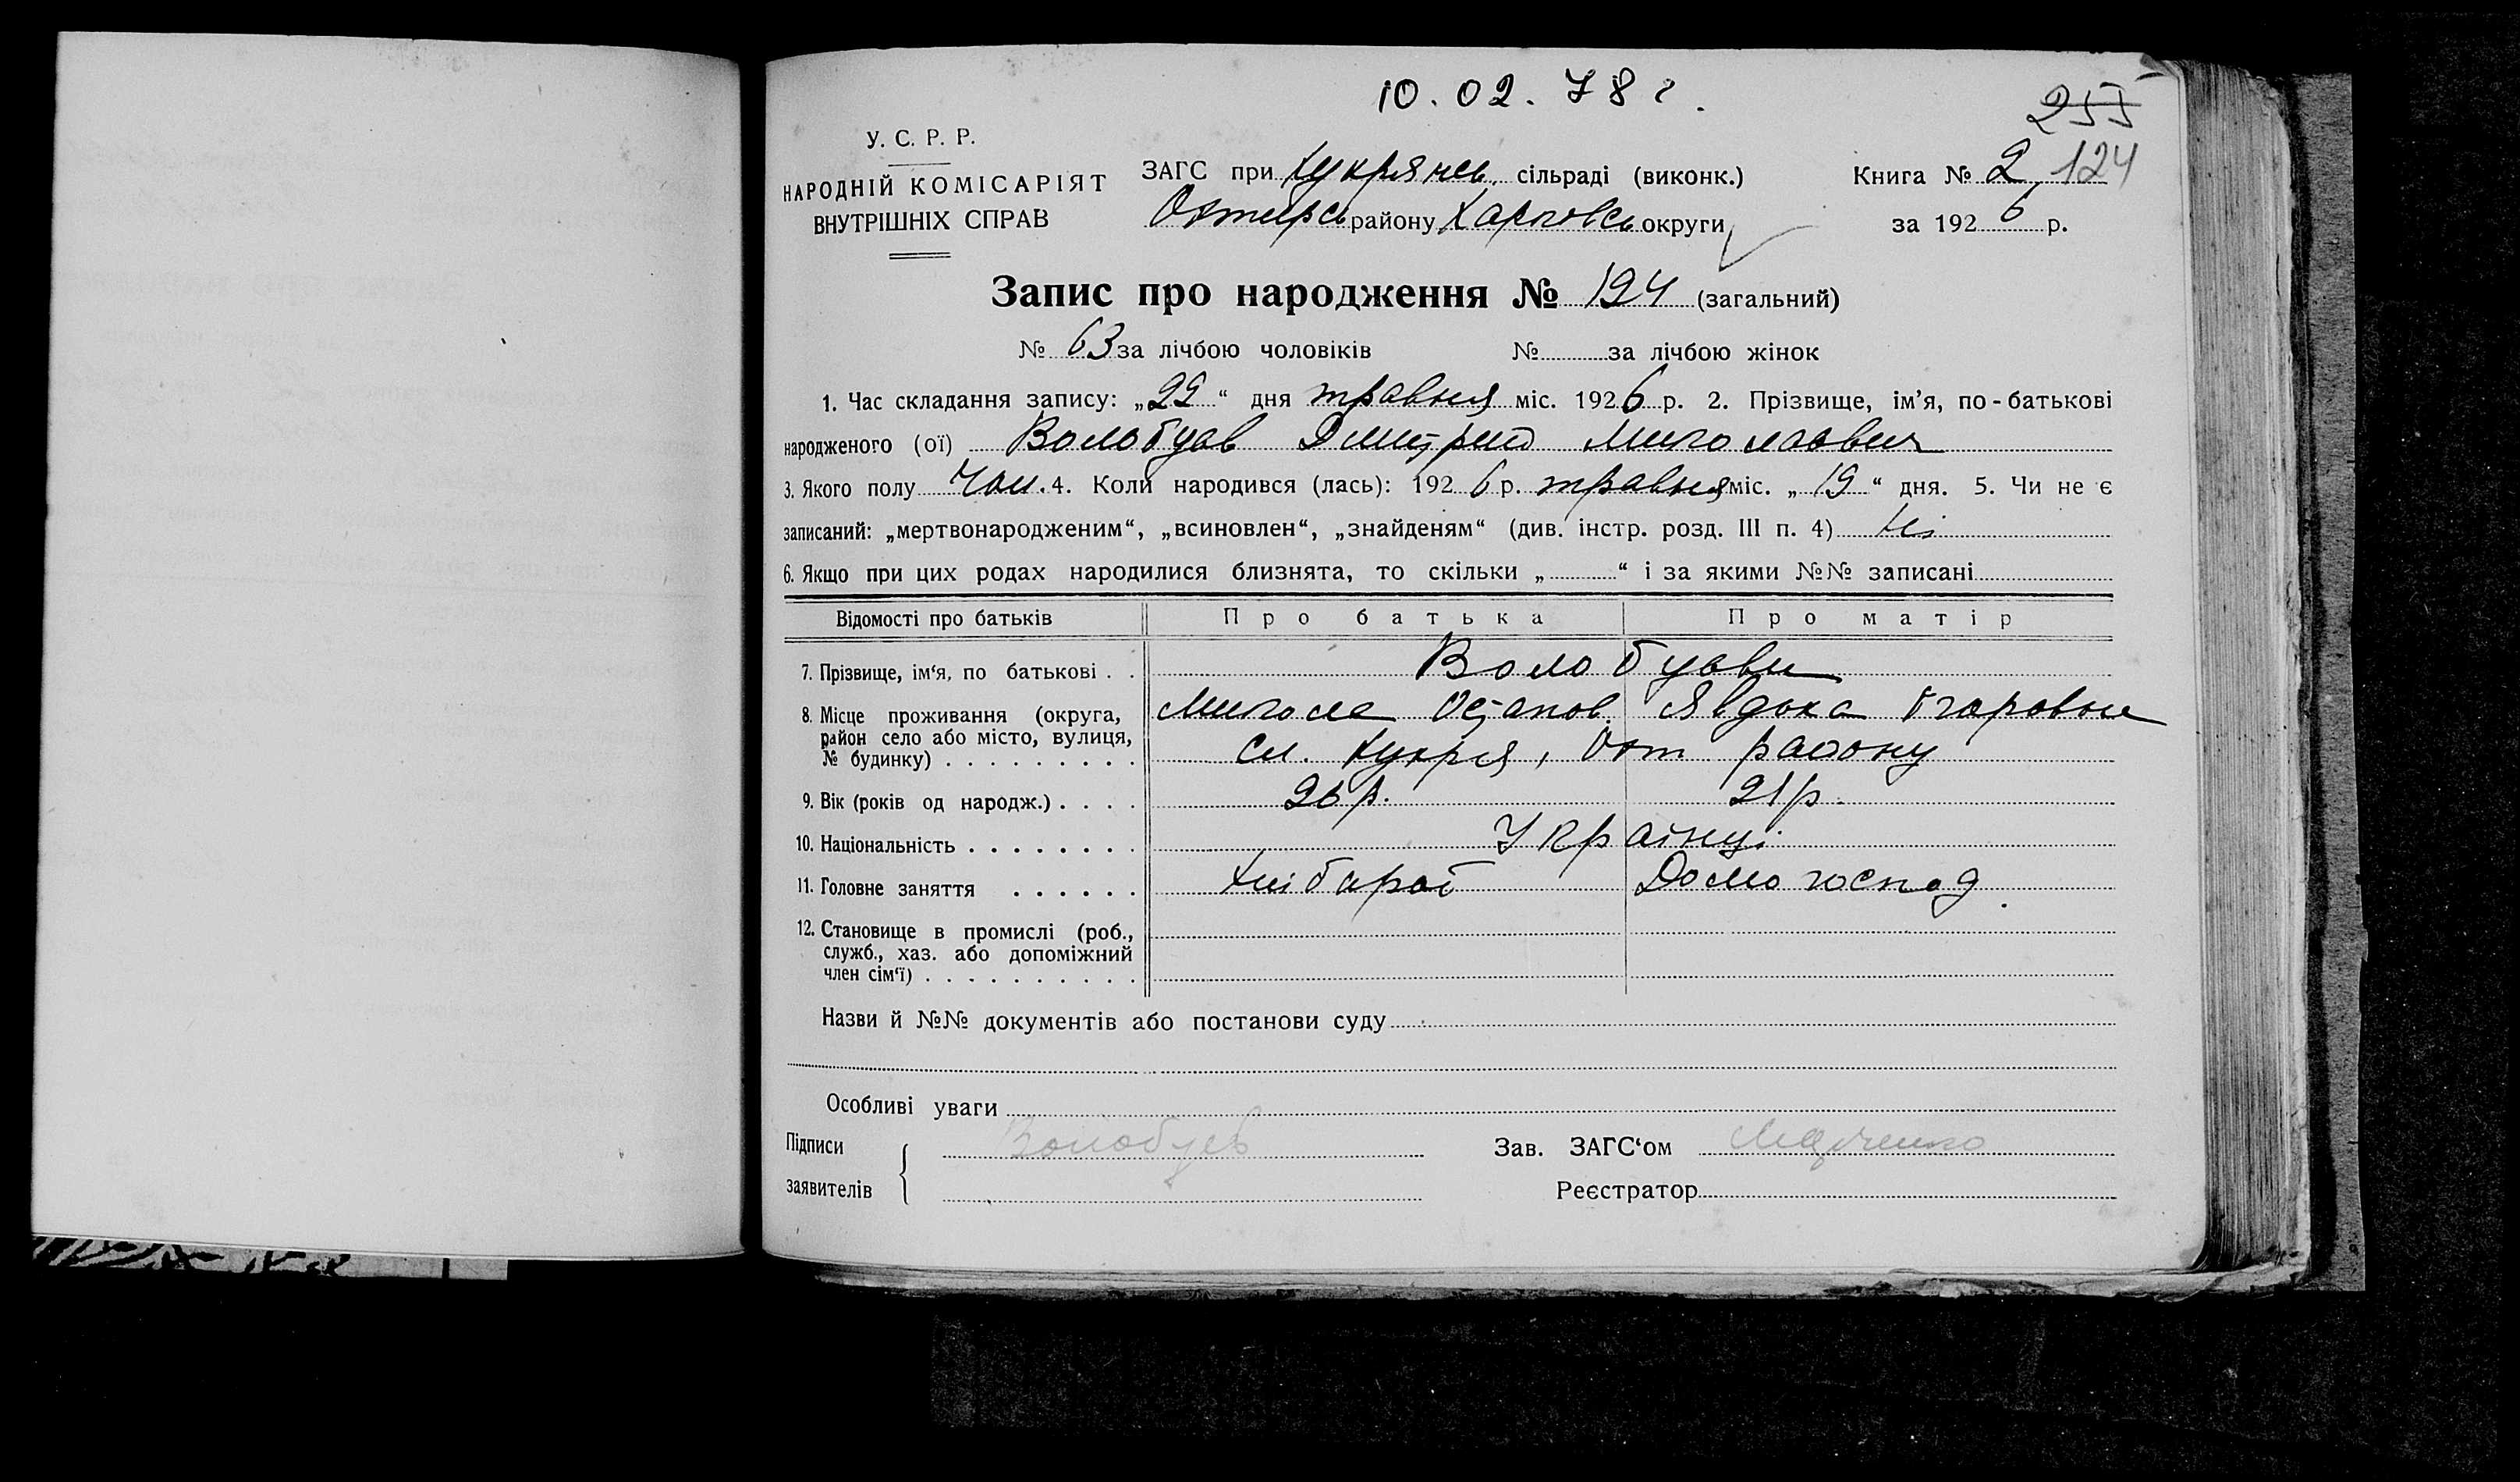 10.02.78 г.
255
У. С. Р. Р.
НАРОДНІЙ КОМІСАРІЯТ
ВНУТРІШНІХ СПРАВ
ЗАГС при сільраді (виконк.)
Охтирсь району Харківсь округи
Книга № 2 124
за 1926 р.
Запис про народження № 124 (загальний)
№ 63 за лічбою чоловіків № за лічбою жінок
1. Час складання запису: „22“ дня травня міс. 1926 р. 2. Прізвище, ім’я, по-батькові
народженого (ої) Волобуєв Дмитрий Миколаєвич
3. Якого полу Чол. 4. Коли народився (лась): 1926 р. травня міс. „19“ дня. 5. Чи не є
записаний: „мертвонародженим“, „всиновлен“, „знайденям“ (див. інстр. розд. III п. 4) Ні
6. Якщо при цих родах народилися близнята, то скільки „ “ і за якими №№ записані
Відомості про батьків Про батька Про матір
7. Прізвище, ім‘я, по батькові . . Волобуєви
Микола Остапов. Явдоха Ігоровна
8. Місце проживання (округа,
район село або місто, вулиця,
№ будинку) . . . . . . . . . сл. , Охт. району
9. Вік (років од народж.) . . . . 26 р. 21 р.
10. Національність . . . . . . . . Українці
11. Головне заняття . . . . . . Хлібороб Домогоспод.
12. Становище в промислі (роб.,
служб., хаз. або допоміжний
член сім‘ї) . . . . . . . . . .
Назви й №№ документів або постанови суду
Особливі уваги
Підписи
заявителів
Волобуев
Зав. ЗАГС‘ом
Реєстратор